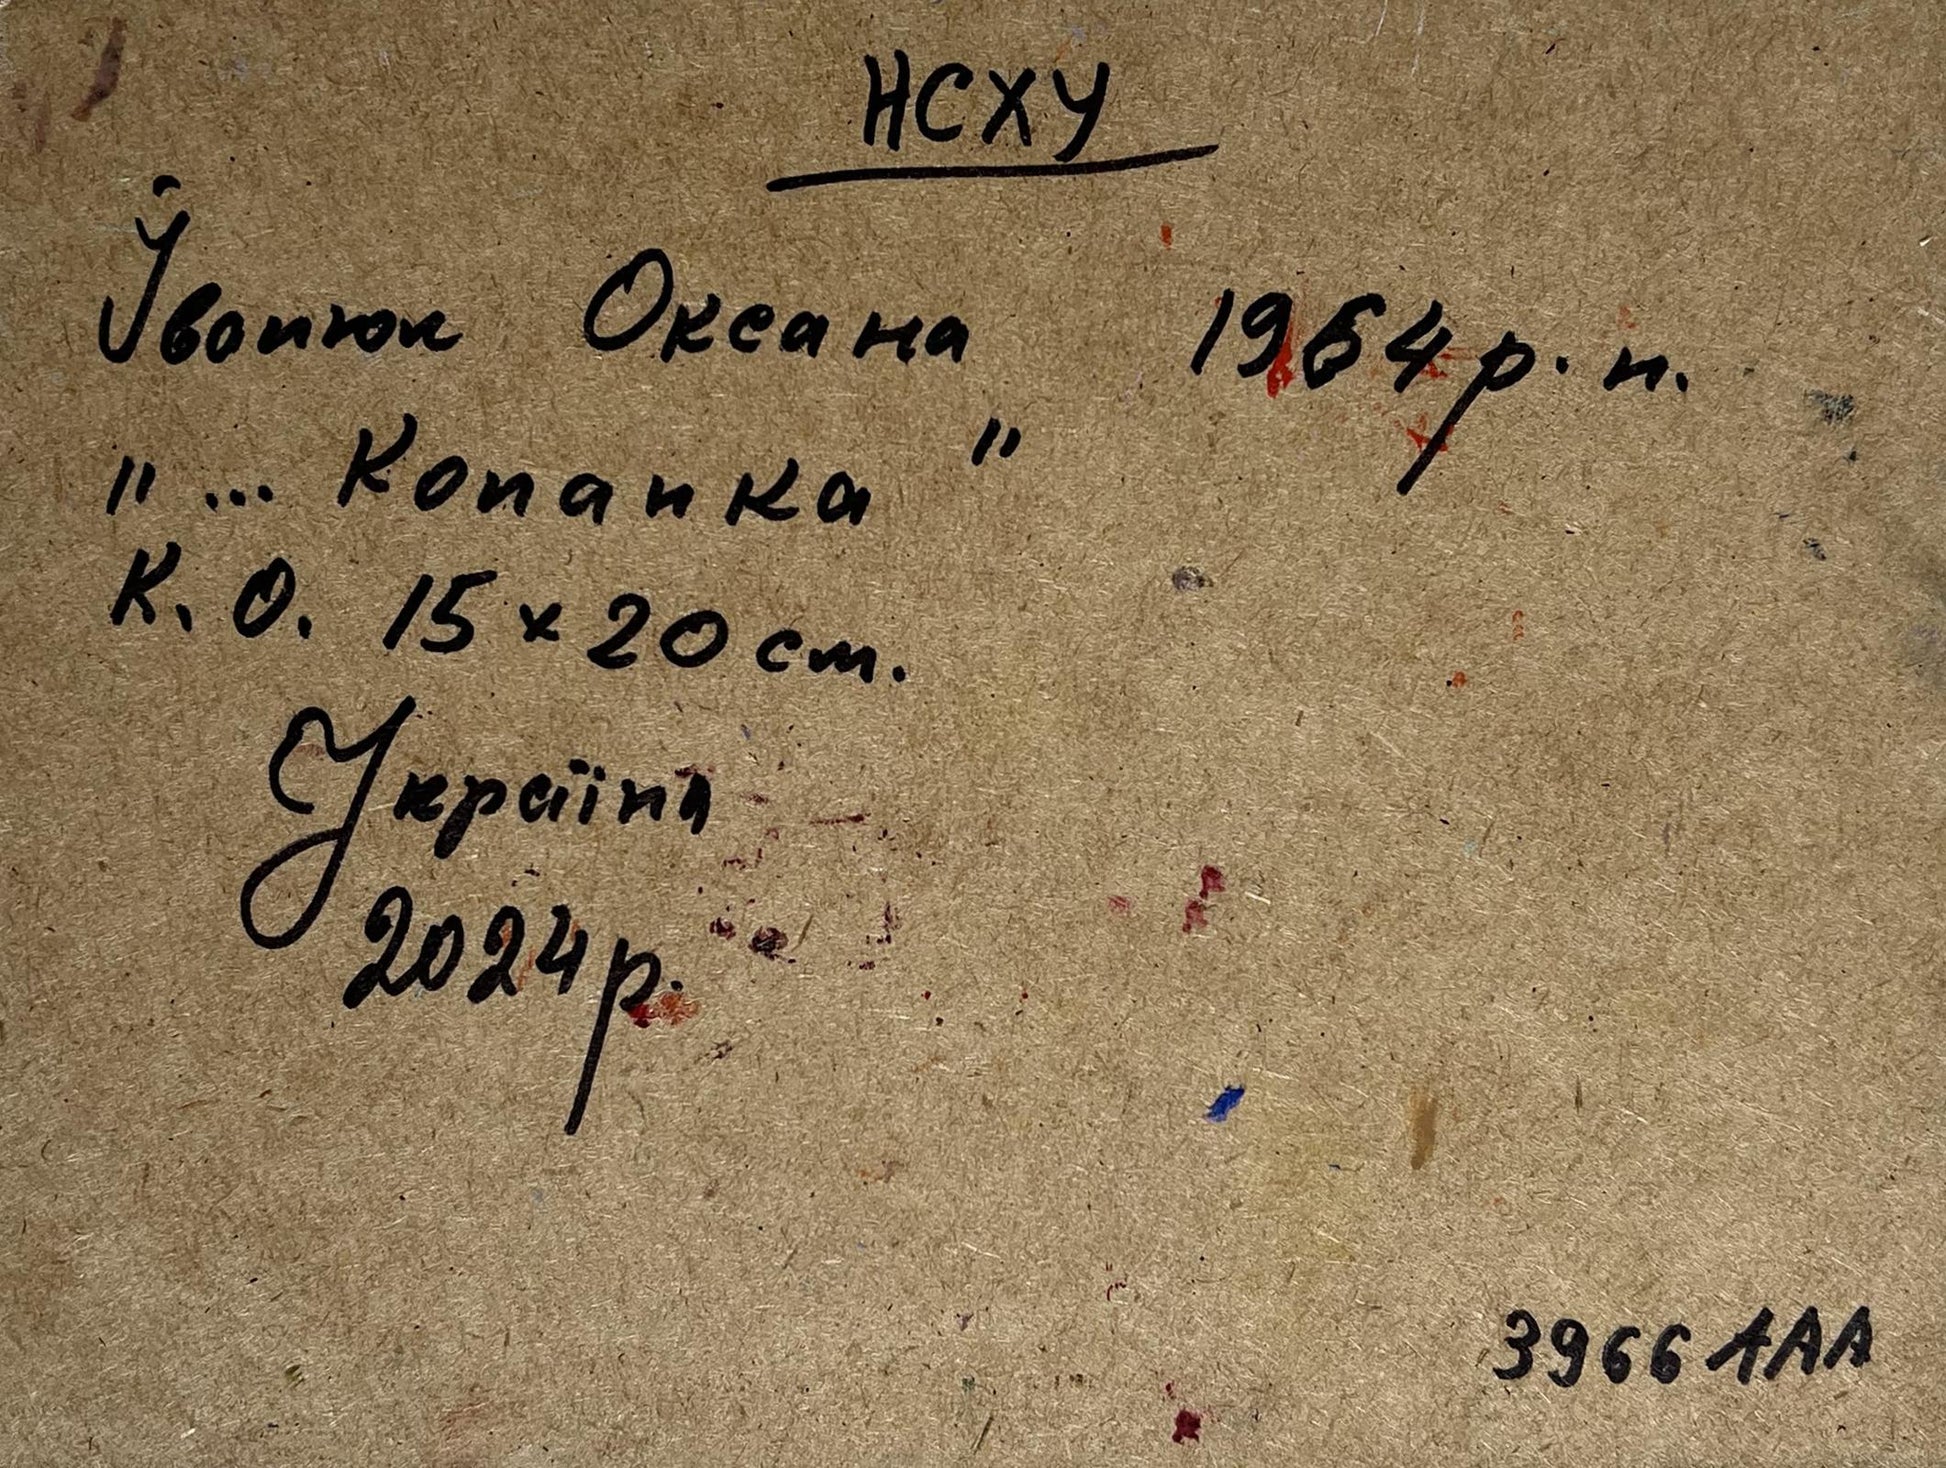 НСХУ
Івонюк Оксана 1964 р. н.
"... Копанка"
К. О. 15 x 20 см.
Україна
2024 р.
3966 ААА